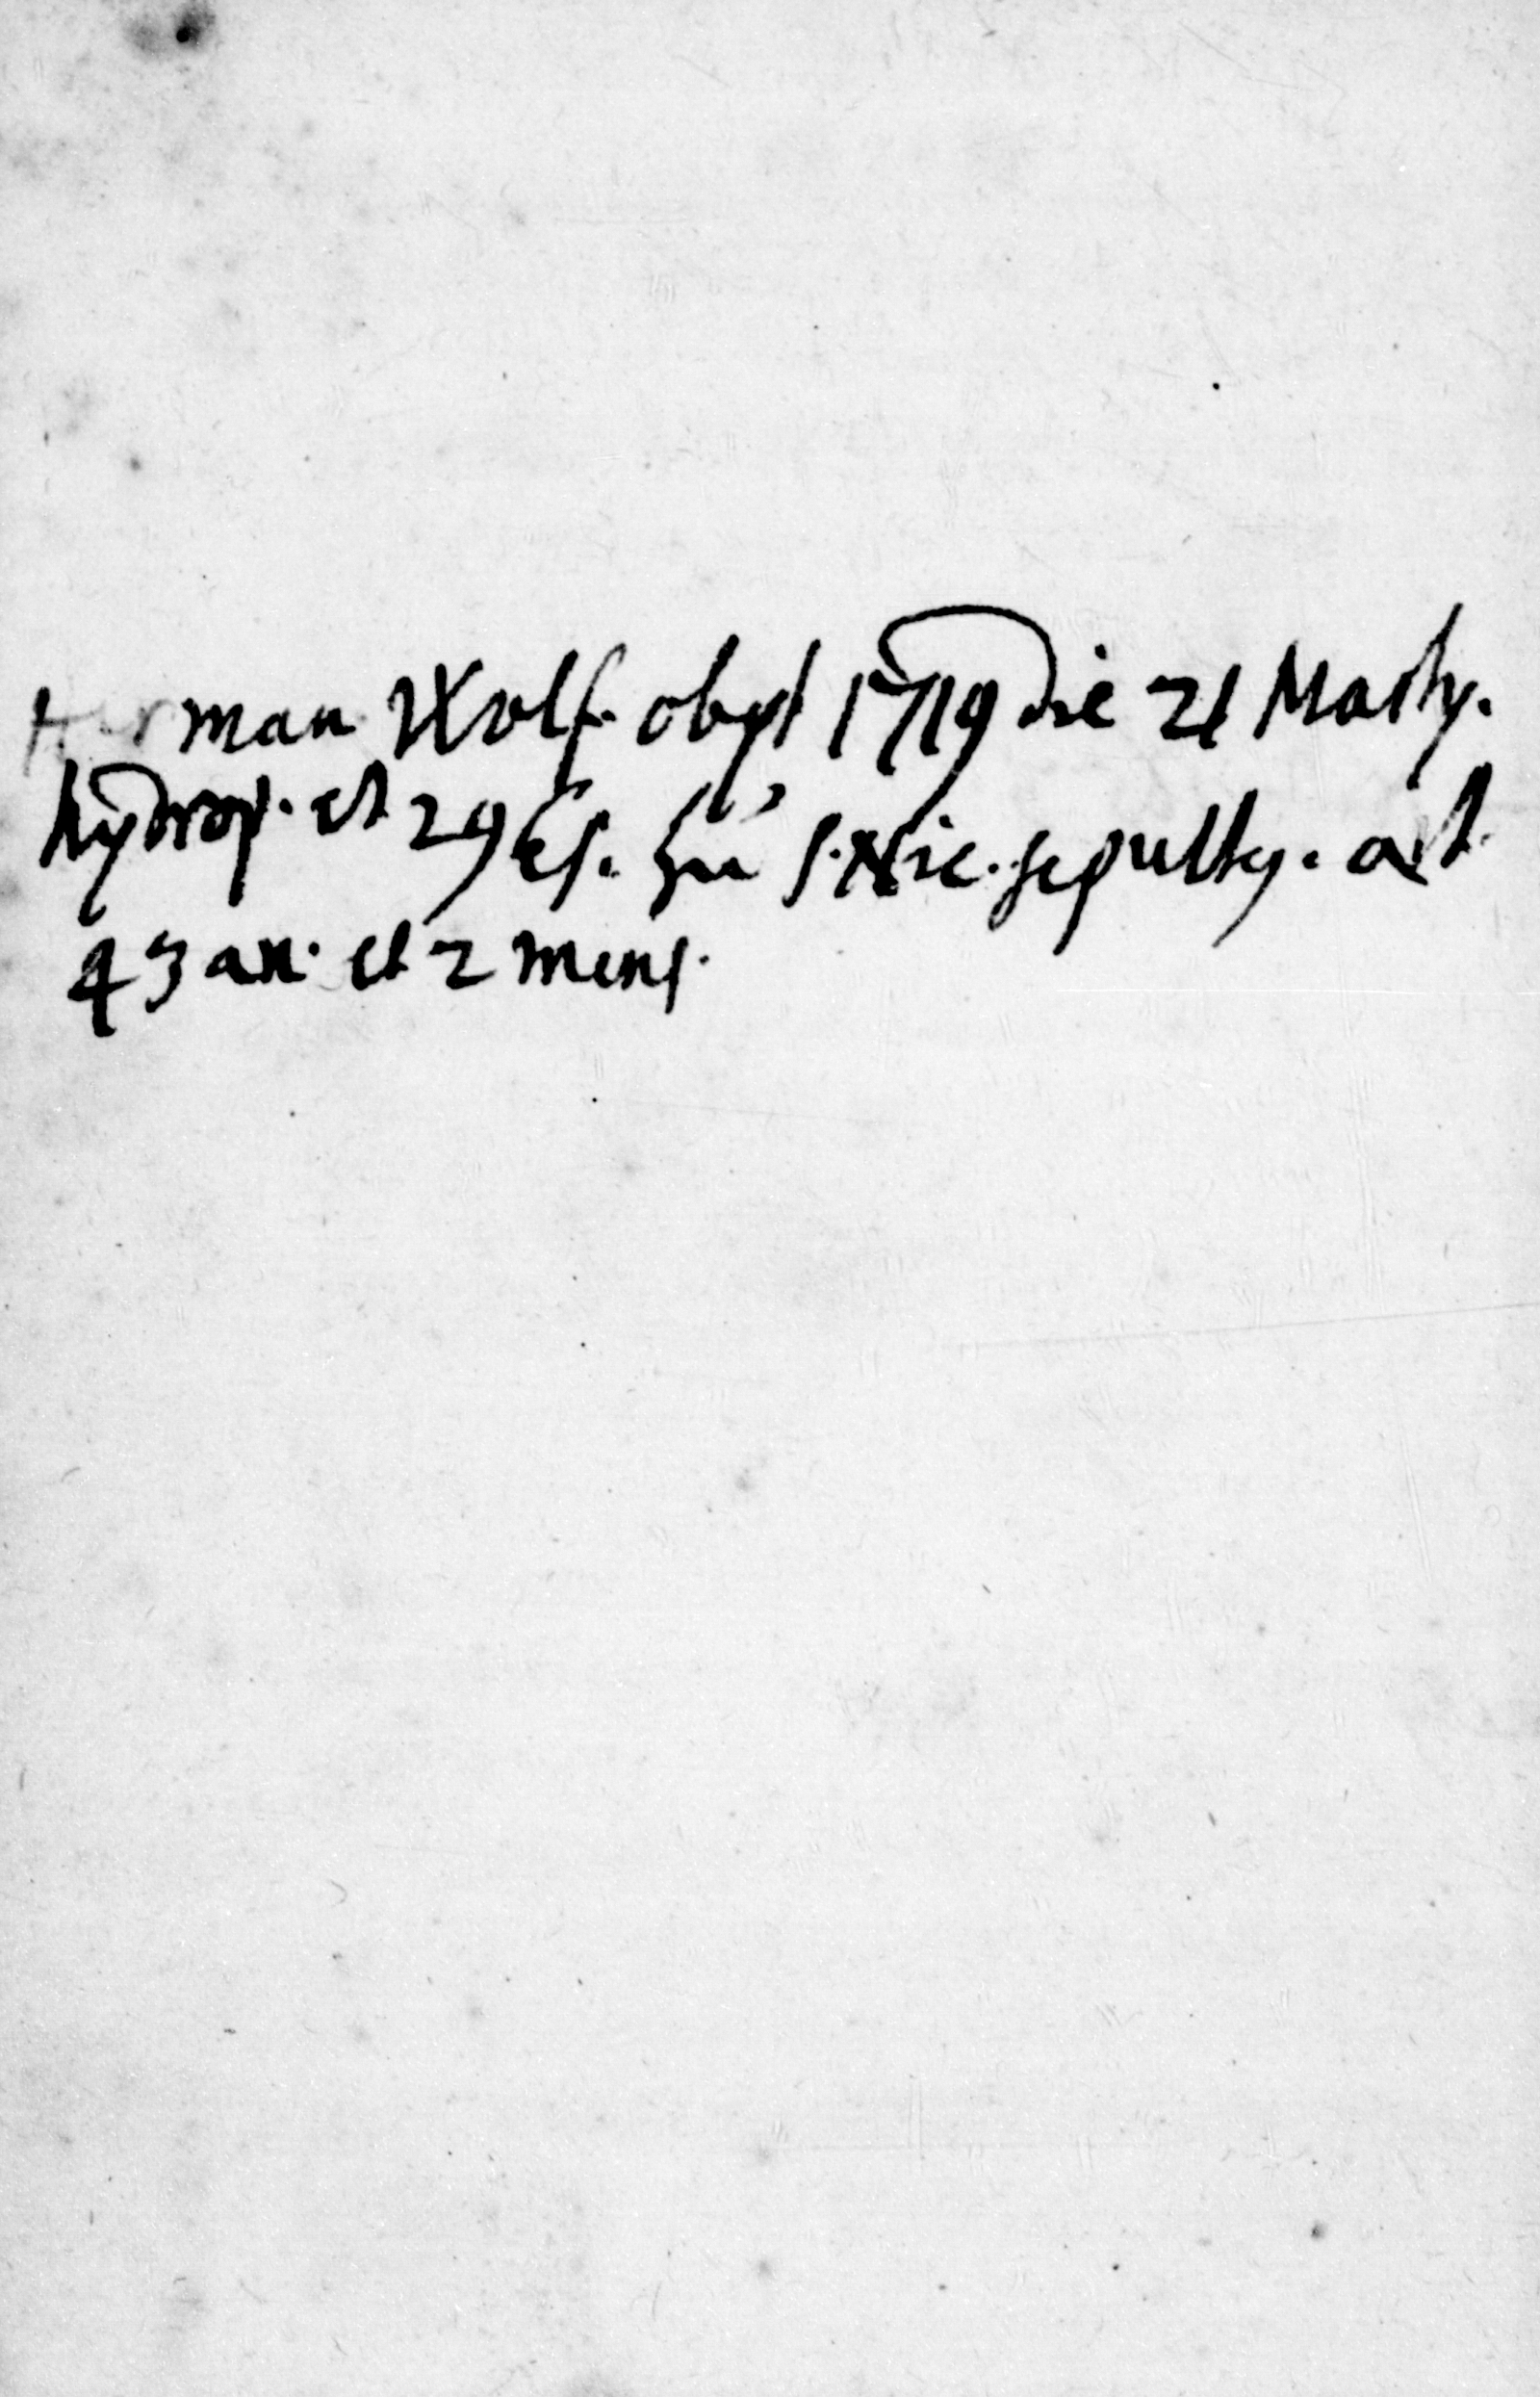 Herman Wolf. obyt 1719 die 21 Marty.
hydrop. et 29 es. zu S. Nic. sepultg. aet.
43 an. et 2 mens.